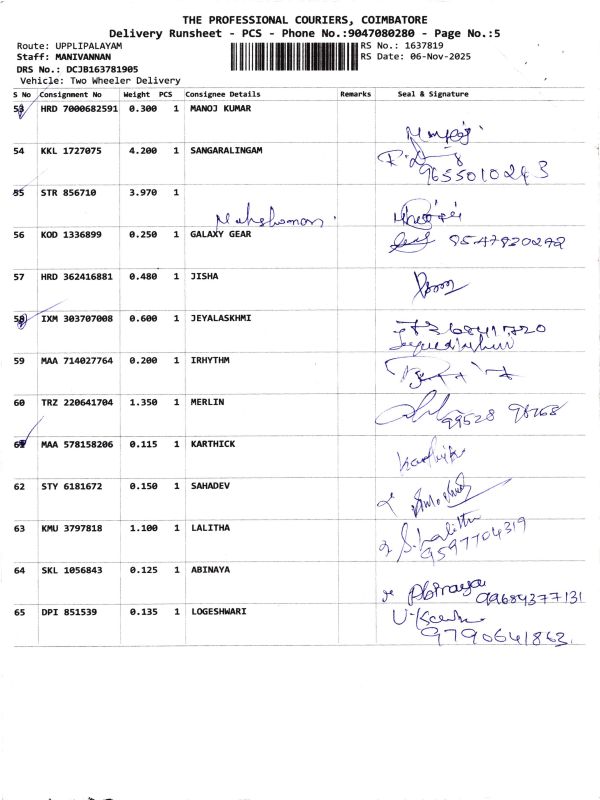 THE PROFESSIONAL COURIERS, COIMBATORE
Delivery Runsheet - PCS - Phone No.:9047080280 - Page No.:5
Route: UPPLIPALAYAM
RS No.: 1637819
Staff: MANIVANNAN
RS Date: 06-Nov-2025
DRS No.: DCJB163781905
Vehicle: Two Wheeler Delivery
S No Consignment No Weight PCS Consignee Details Remarks Seal & Signature
53 HRD 7000682591 0.300 1 MANOJ KUMAR
54 KKL 1727075 4.200 1 SANGARALINGAM
9655010243
55 STR 856710 3.970 1
56 KOD 1336899 0.250 1 GALAXY GEAR
57 HRD 362416881 0.480 1 JISHA
58 IXM 303707008 0.600 1 JEYALASKHMI
59 MAA 714027764 0.200 1 IRHYTHM
60 TRZ 220641704 1.350 1 MERLIN
61 MAA 578158206 0.115 1 KARTHICK
Karthick
62 STY 6181672 0.150 1 SAHADEV
63 KMU 3797818 1.100 1 LALITHA
S. Lalitha
9597704319
64 SKL 1056843 0.125 1 ABINAYA
Abinaya 99684377131
65 DPI 851539 0.135 1 LOGESHWARI
9790641863